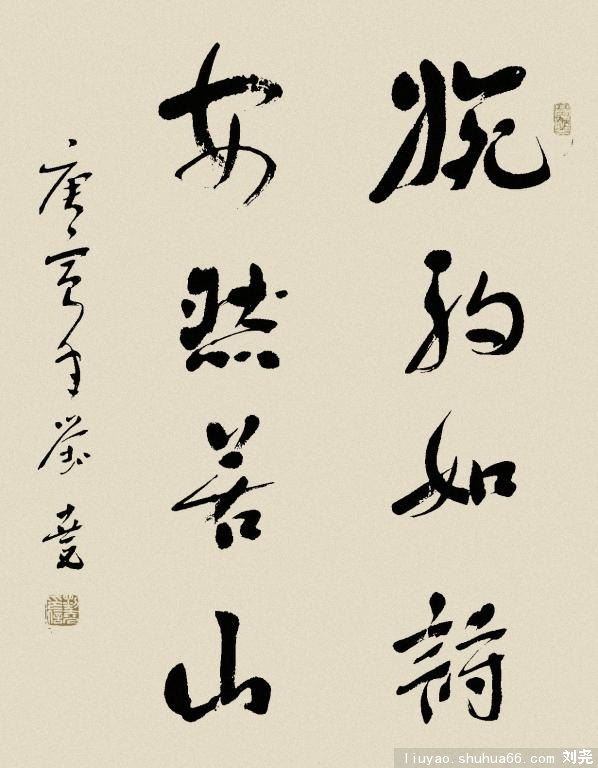 婉約如詩
安然若山
庚寅年堯
liuyao.shuhua66.com 刘尧